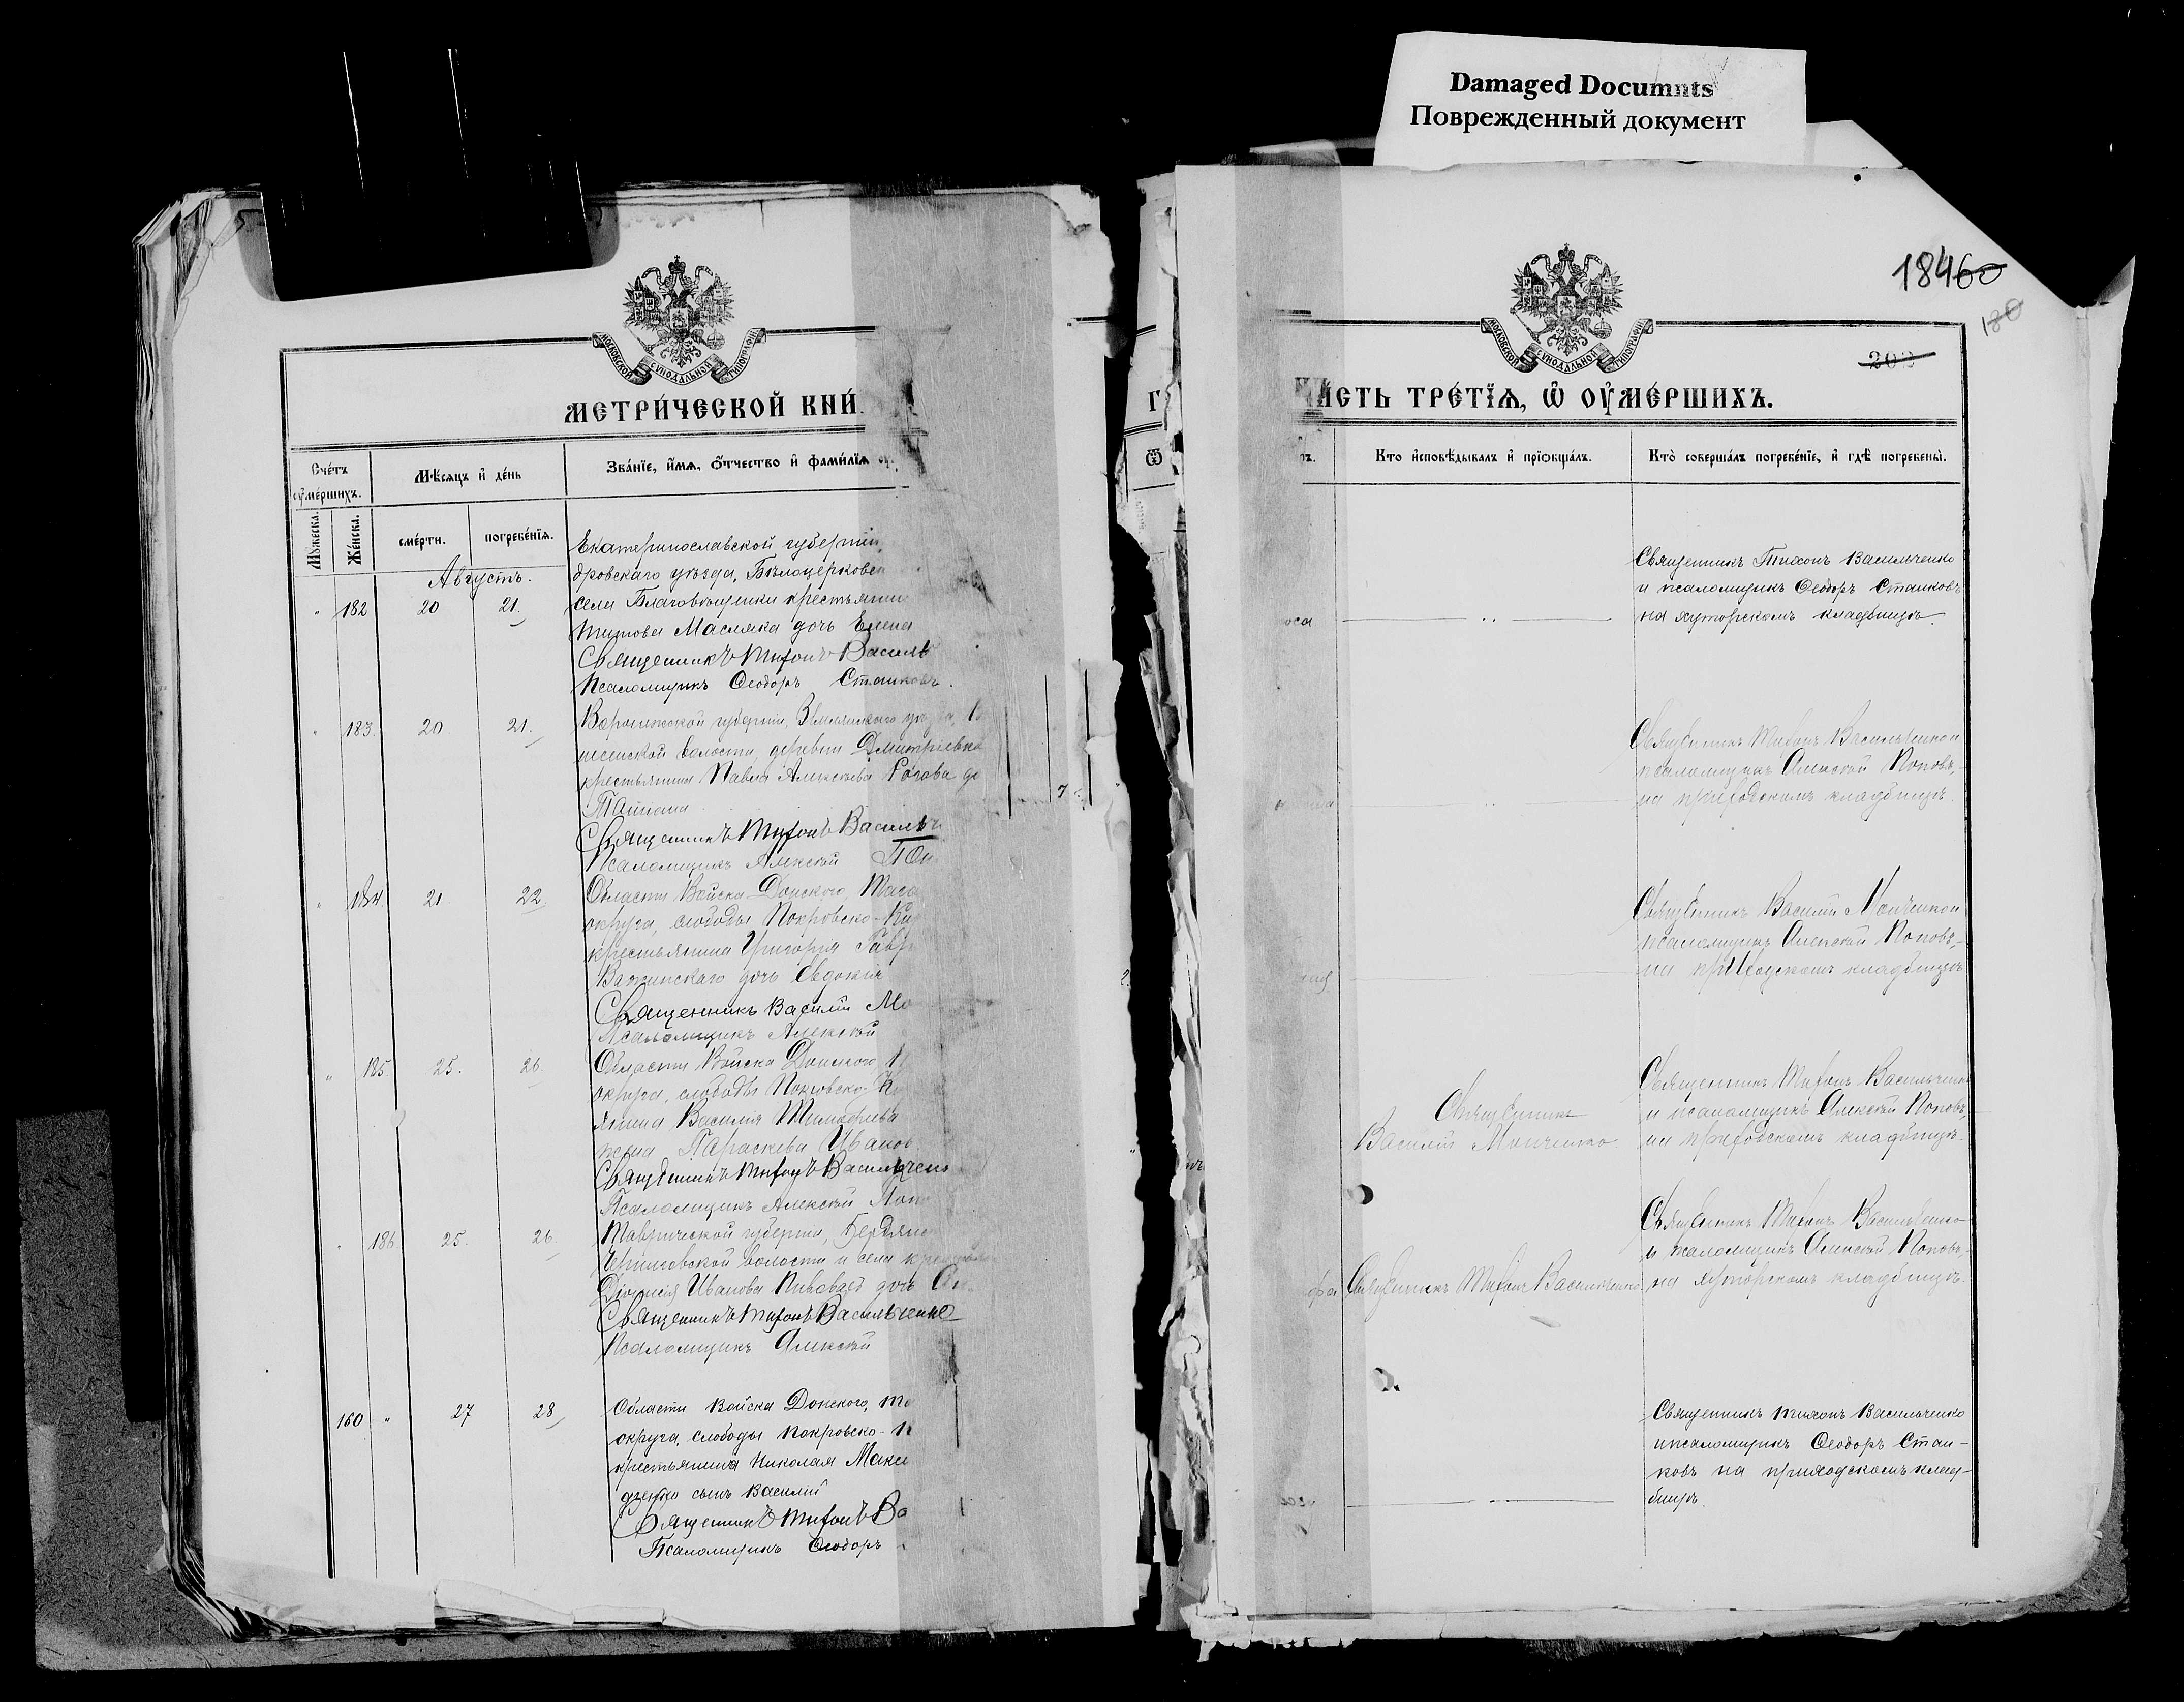 Damaged Documnts
Поврежденный документ
18460
180
202
МОСКОВСКОЙ СѴНОДАЛЬНОЙ ТИПОГРАФІИ
МЕТРИ́ЧЕСКОЙ КНИ́
Сче́тъ ᲂу҆ме́ршихъ.
Мѣ́сяцъ и҆ де́нь
Зва́нїе, и҆́мѧ, ѻ҆́тчество и҆ фами́лїѧ
Мꙋ́жеска.
Же́нска.
сме́рти.
погребе́нїѧ.
Августъ.
182 20 21.
Екатеринославской губерніи,
дровскаго уѣзда, Бѣлоцерковск
села Благовѣщенки крестьянин
Титова Масляка дочь Елена
Священникъ Тихонъ Василь
Псаломщикъ Ѳеодоръ Станковъ.
183 20 21.
Воронежской губерніи, Землянскаго
волости, деревни Дмитріевки
крестьянина Павла Алексѣева Рогова до
Татіана
7
Священникъ Тихонъ Василь
Псаломщикъ Алексѣй Поп
184 21 22.
Области Войска Донского, Тага
округа, слободы Покровско-Ки
крестьянина Григорія Гавр
дочь Евдокія
Священникъ Василій Мо
Псаломщикъ Алексѣй
185 25. 26.
Области Войска Донского,
округа, слободы Покровско-Ки
янина Василія Тимоѳеева
Параскева Иванов
Священникъ Тихонъ Васильчен
Псаломщикъ Алексѣй Поп
186 25. 26.
Таврической губерніи, Бердян
Черниговской волости и села
Діонисія Иванова дочь
Священникъ Тихонъ Васильченко
Псаломщикъ Алексѣй
160 " 27 28
Области Войска Донского, Та
округа, слободы Покровско-К
крестьянина Николая Макс
сынъ Василій
Священникъ Тихонъ Ва
Псаломщикъ Ѳеодоръ
МОСКОВСКОЙ СѴНОДАЛЬНОЙ ТИПОГРАФІИ
ЧА́СТЬ ТРЕ́ТЇѦ, Ѡ҆ ᲂУ҆МЕ́РШИХЪ.
Кто и҆сповѣ́дывалъ и҆ прїѡбща́лъ.
Кто̀ соверша́лъ погребе́нїе, и҆ гдѣ̀ погребены̀.
Священникъ Тихонъ Васильченко
и псаломщикъ Ѳеодоръ Станковъ
на хуторскомъ кладбищѣ.
Священникъ Тихонъ Васильченко и
псаломщикъ Алексѣй Поповъ,
на приходскомъ кладбищѣ.
Священникъ Василій Монченко и
псаломщикъ Алексѣй Поповъ,
на приходскомъ кладбищѣ.
Священникъ
Василій Монченко
Священникъ Тихонъ Васильченко
и псаломщикъ Алексѣй Поповъ,
на приходскомъ кладбищѣ.
Священникъ Тихонъ Васильченко
Священникъ Тихонъ Васильченко
и псаломщикъ Алексѣй Поповъ,
на хуторскомъ кладбищѣ.
Священникъ Тихонъ Васильченко
и псаломщикъ Ѳеодоръ Стан-
ковъ на приходскомъ клад-
бищѣ.